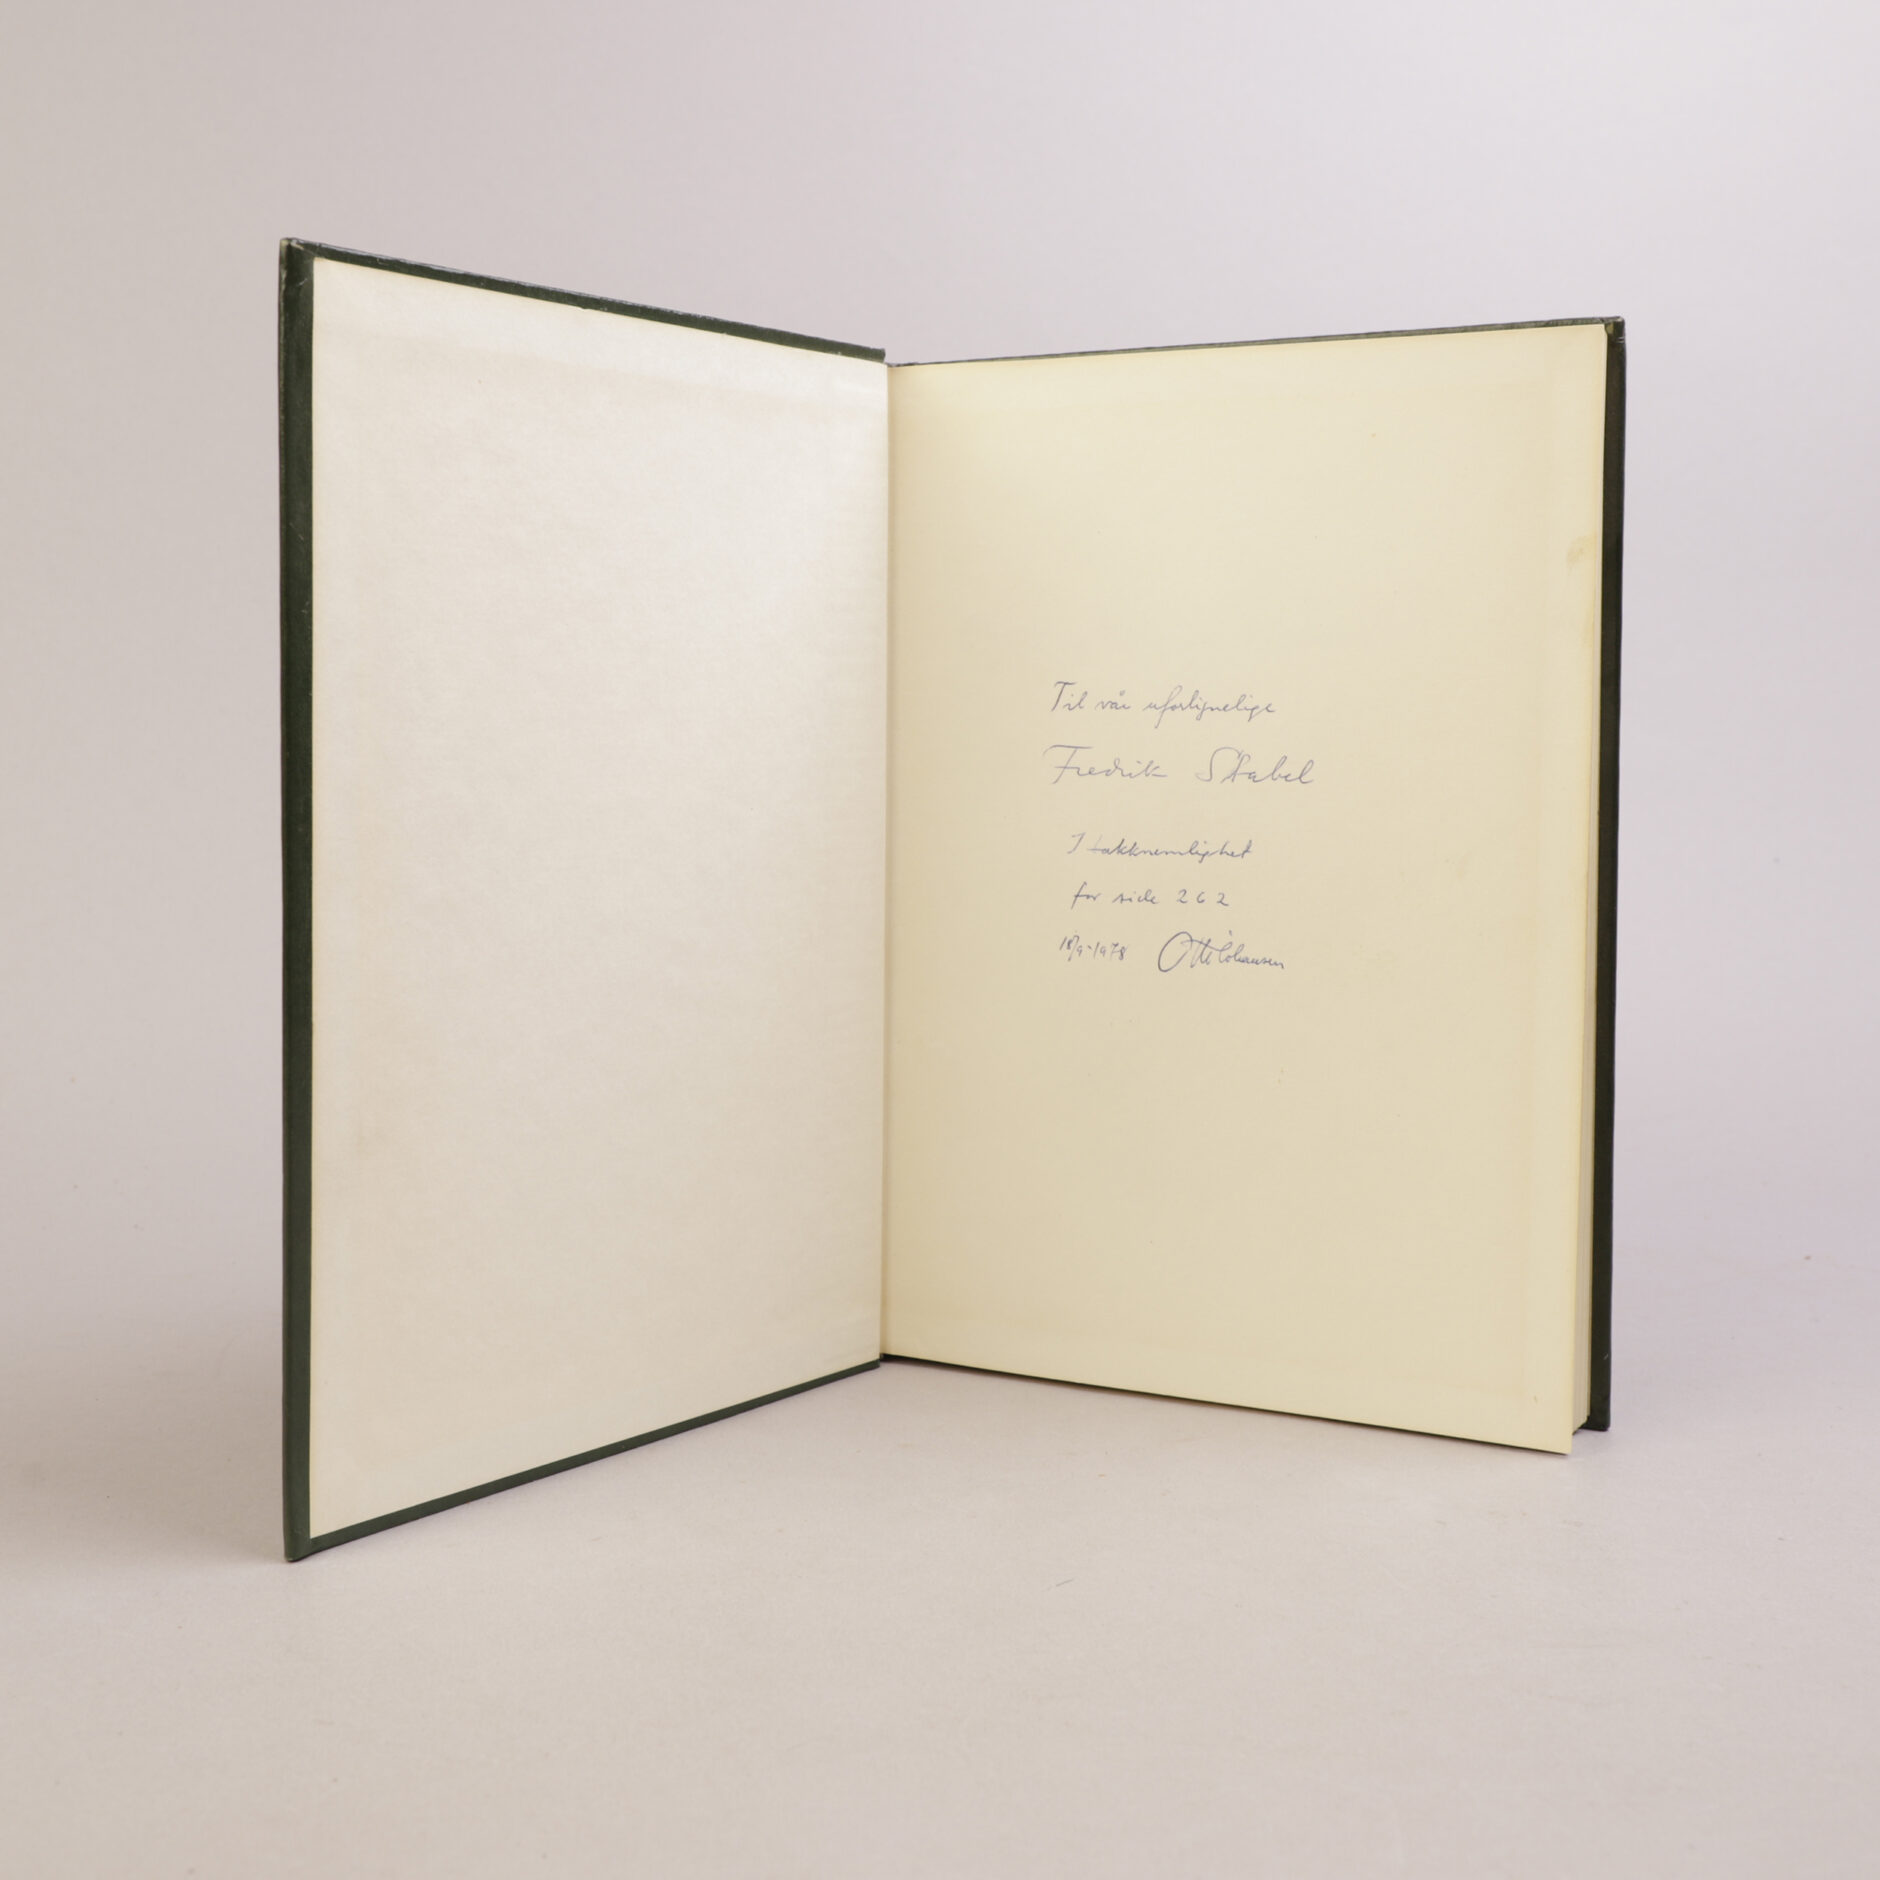 Til vår uforlignelige
Fredrik Stabel
I takknemlighet
for side 262
18/9-1978 Otto